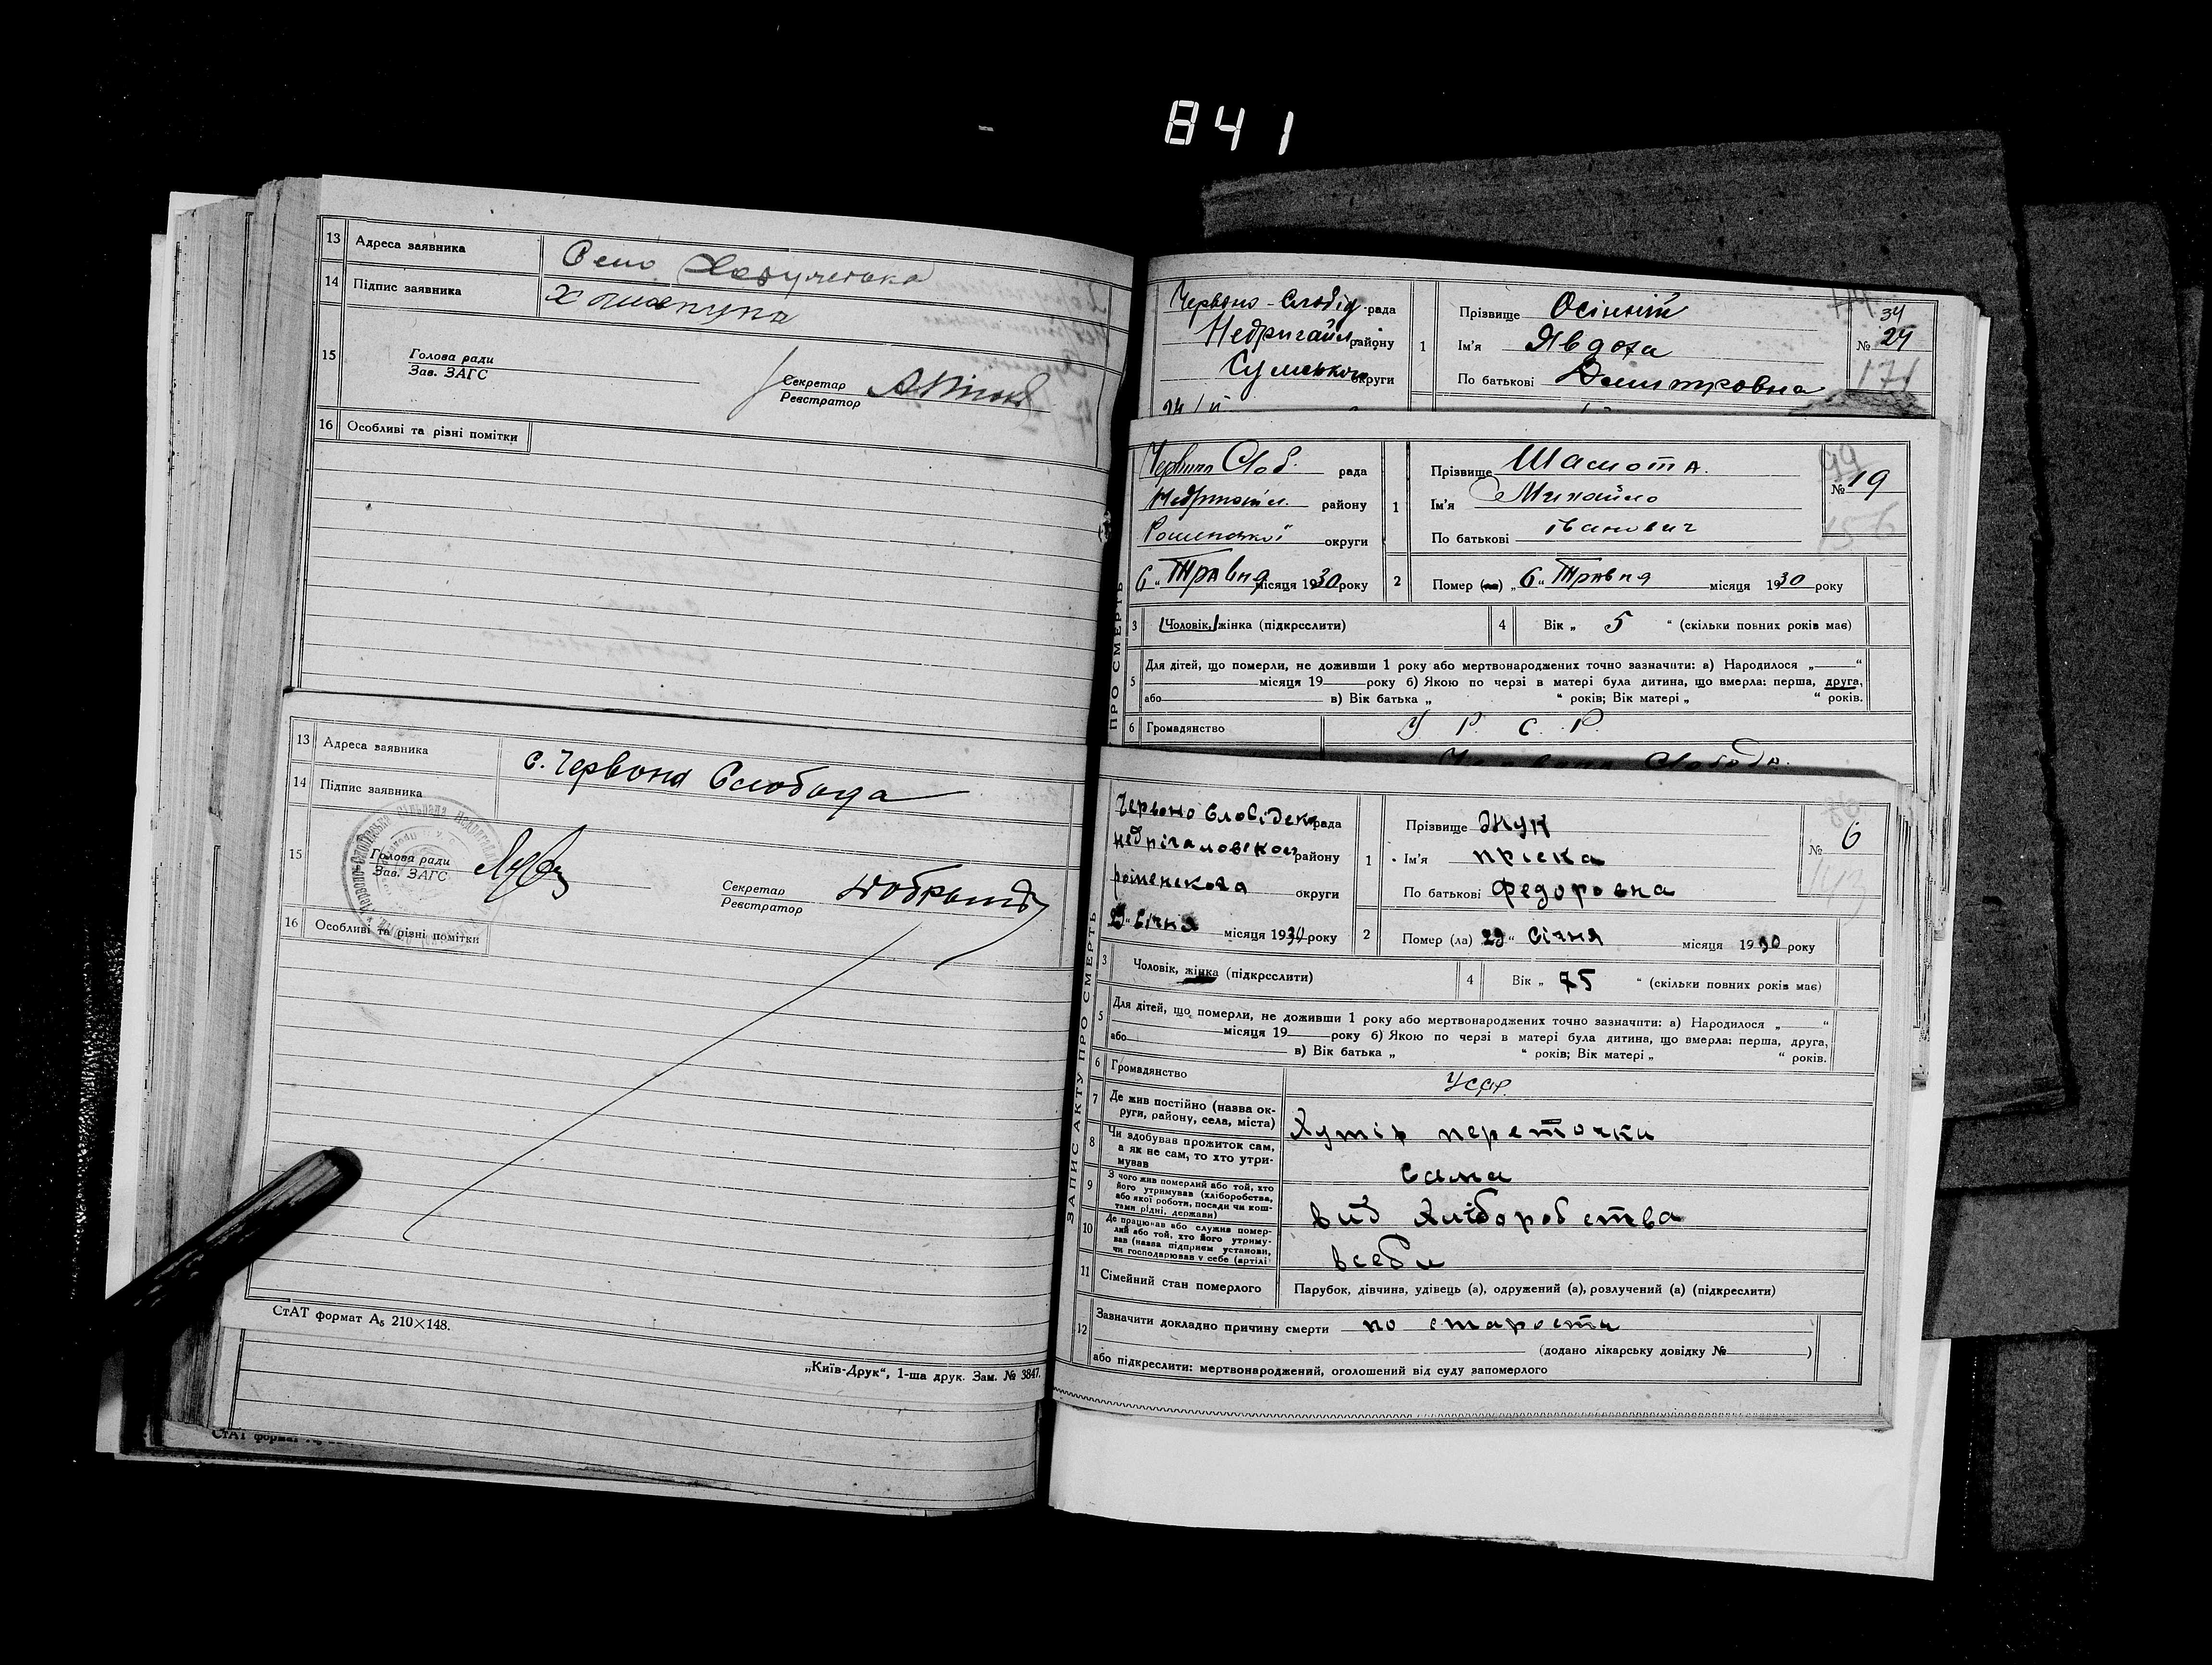 841
13 Адреса заявника Село
14 Підпис заявника
15 Голова ради
Зав. ЗАГС
Секретар
Реєстратор
16 Особливі та різні помітки
13 Адреса заявника с. Червона Слобода
14 Підпис заявника
15 Голова ради
Зав. ЗАГС
Секретар
Реєстратор
16 Особливі та різні помітки
СтАТ формат А₅ 210×148.
„Київ-Друк“, 1-ша друк. Зам. № 3847.
СтАТ формат
Червоно-Слобід рада
Недригайл. району
Сумської округи
1 Прізвище Осінній
Ім'я Явдоха
По батькові Демитровна
34
№ 24
171
Червоно Слоб. рада
Недригайл. району
Роменської округи
6 „ Травня місяця 1930 року
1 Прізвище Шамота.
Ім'я Михайло
По батькові іванович
99
№ 19
156
2 Помер (ла) „ 6 “ Травня місяця 1930 року
3 Чоловік, жінка (підкреслити)
4 Вік „ 5 “ (скільки повних років має)
5 Для дітей, що померли, не доживши 1 року або мертвонароджених точно зазначити: а) Народилося „ “
місяця 19 року б) Якою по черзі в матері була дитина, що вмерла: перша, друга,
або в) Вік батька „ “ років; Вік матері „ “ років.
6 Громадянство У Р. С. Р.
Червона Слобода.
ЗАПИС АКТУ ПРО СМЕРТЬ
Червоно Слобідск рада
району
роменскога округи
29 “ Січня місяця 1930 року
1 Прізвище Жук
Ім'я пріска
По батькові Федоровна
№ 6
143
2 Помер (ла) 29 “ Січня місяця 1930 року
3 Чоловік, жінка (підкреслити)
4 Вік „ 75 “ (скільки повних років має)
5 Для дітей, що померли, не доживши 1 року або мертвонароджених точно зазначити: а) Народилося „ “
місяця 19 року б) Якою по черзі в матері була дитина, що вмерла: перша, друга,
або в) Вік батька „ “ років; Вік матері „ “ років.
6 Громадянство УССР.
7 Де жив постійно (назва округи, району, села, міста) Хутір переточки
8 Чи здобував прожиток сам, а як не сам, то хто утримував сама
9 З чого жив померлий або той, хто його утримував (хліборобства, або якої роботи, посади чи коштами рідні, держави) вид хліборобства
10 Де працював або служив померлий або той, хто його утримував (назва підприєм установи, чи господарював у себе (артілі всеби
11 Сімейний стан померлого Парубок, дівчина, удівець (а), одружений (а), розлучений (а) (підкреслити)
12 Зазначити докладно причину смерти по старости
(додано лікарську довідку № )
або підкреслити: мертвонароджений, оголошений від суду запомерлого